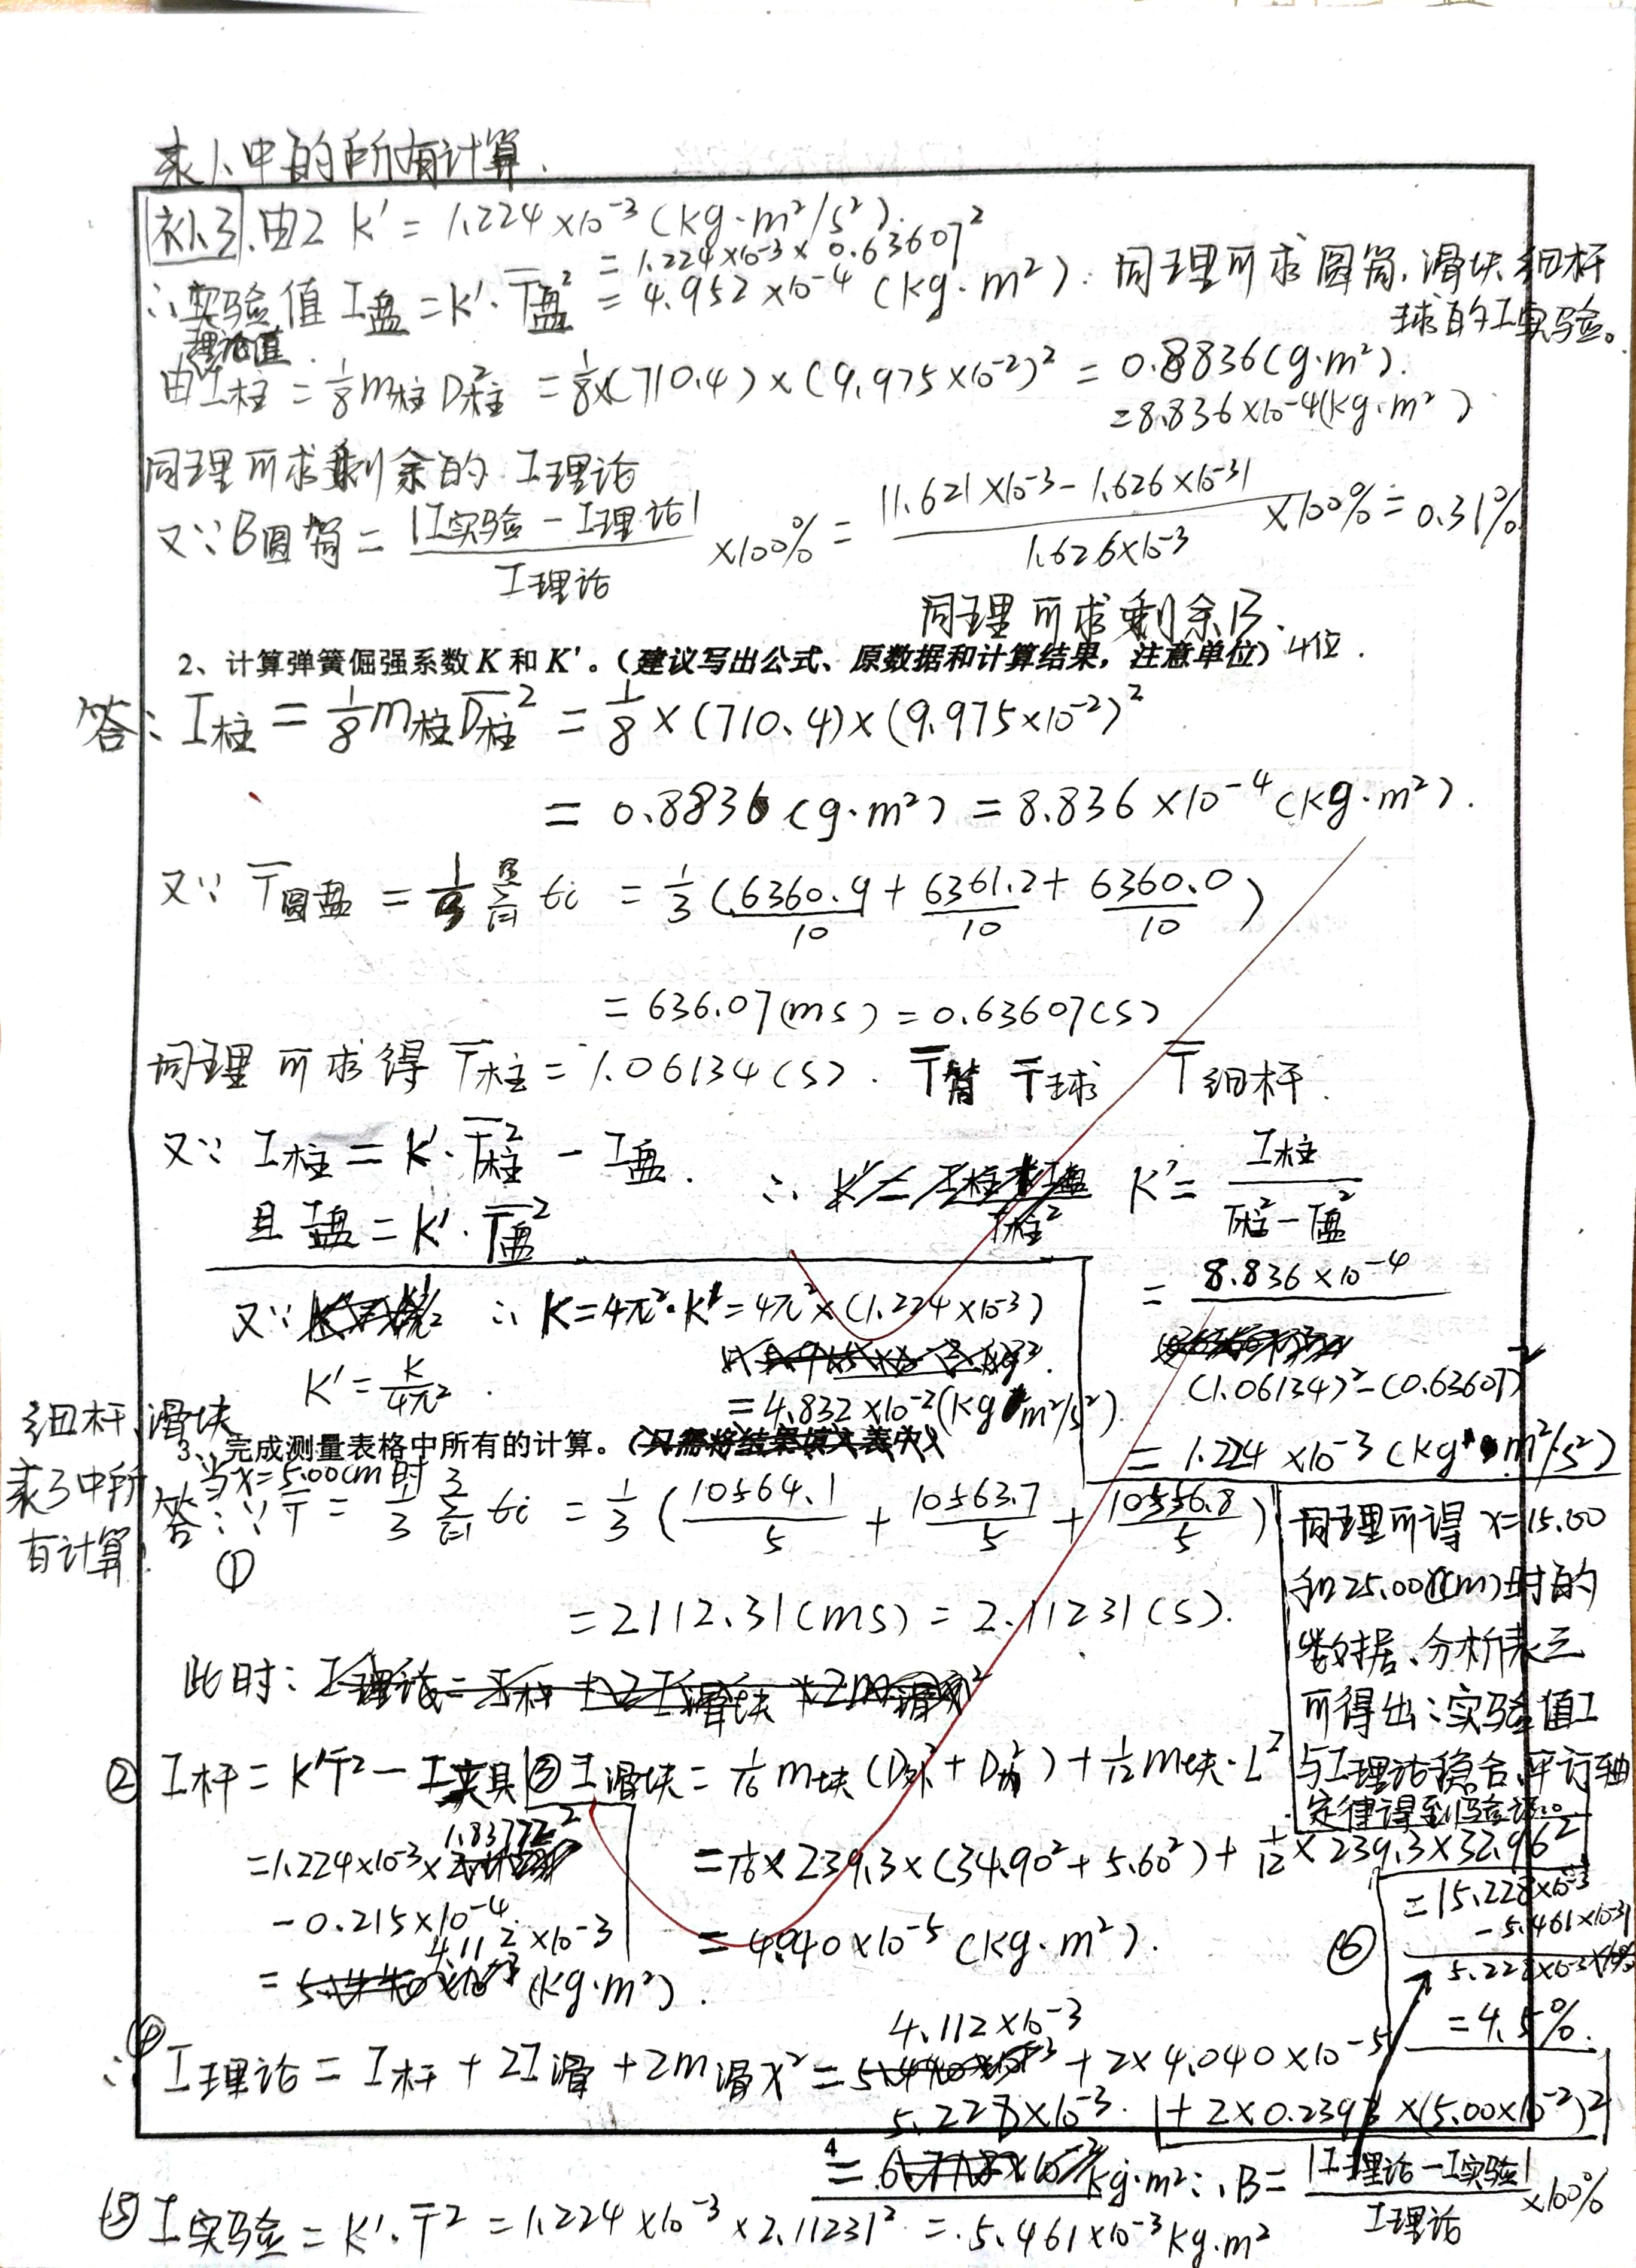 表1中的所有计算.
补3.由2 K' = 1.224 ×10⁻³ (kg·m²/s²).
= 1.224×10⁻³ × 0.63607²
∴实验值 I盘 = K'·T̅盘² = 4.952 ×10⁻⁴ (kg·m²). 同理可求圆筒.滑块.细杆
球的I实验。
理论值
由I柱 = 1/8 m柱 D柱² = 1/8×(710.4) × (9.975×10⁻²)² = 0.8836(g·m²).
=8.836×10⁻⁴(kg·m²)
同理可求剩余的 I理论
又∵B圆筒 = |I实验 - I理论| / I理论 ×100% = |1.621×10⁻³ - 1.626×10⁻³| / 1.626×10⁻³ ×100% = 0.31%
同理可求剩余B.
2、计算弹簧倔强系数K和K'。(建议写出公式、原数据和计算结果,注意单位) 4位.
答: I柱 = 1/8 m柱 D̅柱² = 1/8 × (710.4) × (9.975×10⁻²)²
= 0.8836 (g·m²) = 8.836 ×10⁻⁴ (kg·m²).
又∵ T̅圆盘 = 1/3 Σ ti = 1/3 (6360.9/10 + 6361.2/10 + 6360.0/10)
= 636.07(ms) = 0.63607(s)
同理可求得 T̅柱 = 1.06134(s). T̅筒 T̅球 T̅细杆.
又∵ I柱 = K'·T̅柱² - I盘. ∴ K' = I柱 / T柱² - T盘²
且 I盘 = K'·T̅盘²
= 8.836 ×10⁻⁴ / (1.06134)² - (0.63607)²
= 1.224 ×10⁻³ (kg·m²/s²)
又∵ K' = K/4π². ∴ K = 4π²·K' = 4π² × (1.224 ×10⁻³)
= 4.832 ×10⁻² (kg·m²/s²)
细杆、滑块
表3中所
有计算.
3、完成测量表格中所有的计算。(只需将结果填入表中)
当x=5.00cm时
答: ① ∵ T̅ = 1/3 Σ ti = 1/3 (10564.1/5 + 10563.7/5 + 10556.8/5)
= 2112.31(ms) = 2.11231(s).
同理可得 x=15.00
和25.00(cm)时的
数据、分析表三
可得出:实验值I
与I理论稳合,平行轴
定律得到验证。
此时:
② I杆 = K'T̅² - I夹具
= 1.224×10⁻³ × 1.83772²
- 0.215×10⁻⁴
= 4.112 ×10⁻³ (kg·m²).
③ I滑块 = 1/16 m块 (D外² + D内²) + 1/12 m块·L²
= 1/16 × 239.3 × (34.90² + 5.60²) + 1/12 × 239.3 × 32.96²
= 4.040 ×10⁻⁵ (kg·m²).
④ ∴ I理论 = I杆 + 2I滑 + 2m滑x² = 4.112×10⁻³ + 2×4.040×10⁻⁵
+ 2×0.2393 ×(5.00×10⁻²)²
= 5.228×10⁻³ kg·m² ∴ B = |I理论 - I实验| / I理论 ×100%
⑥ = |5.228×10⁻³ - 5.461×10⁻³| / 5.228×10⁻³ ×100%
= 4.5%.
4
⑤ I实验 = K'·T̅² = 1.224 ×10⁻³ × 2.11231² = 5.461×10⁻³ kg·m²